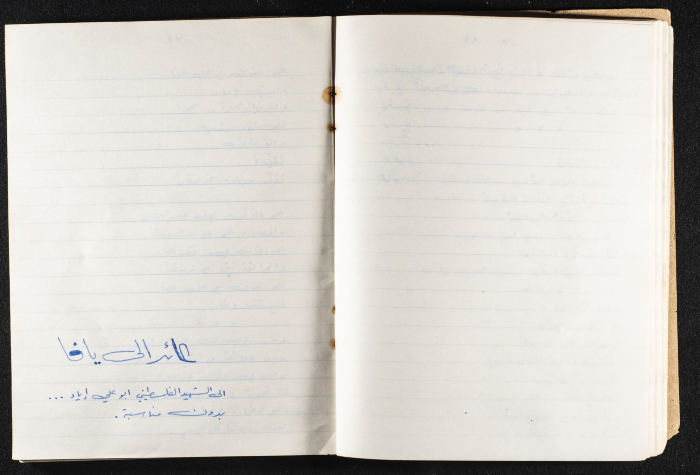 عائد الى يافا
الى الشهيد الفلسطيني ابو علي إياد ...
بدون مناسبة.